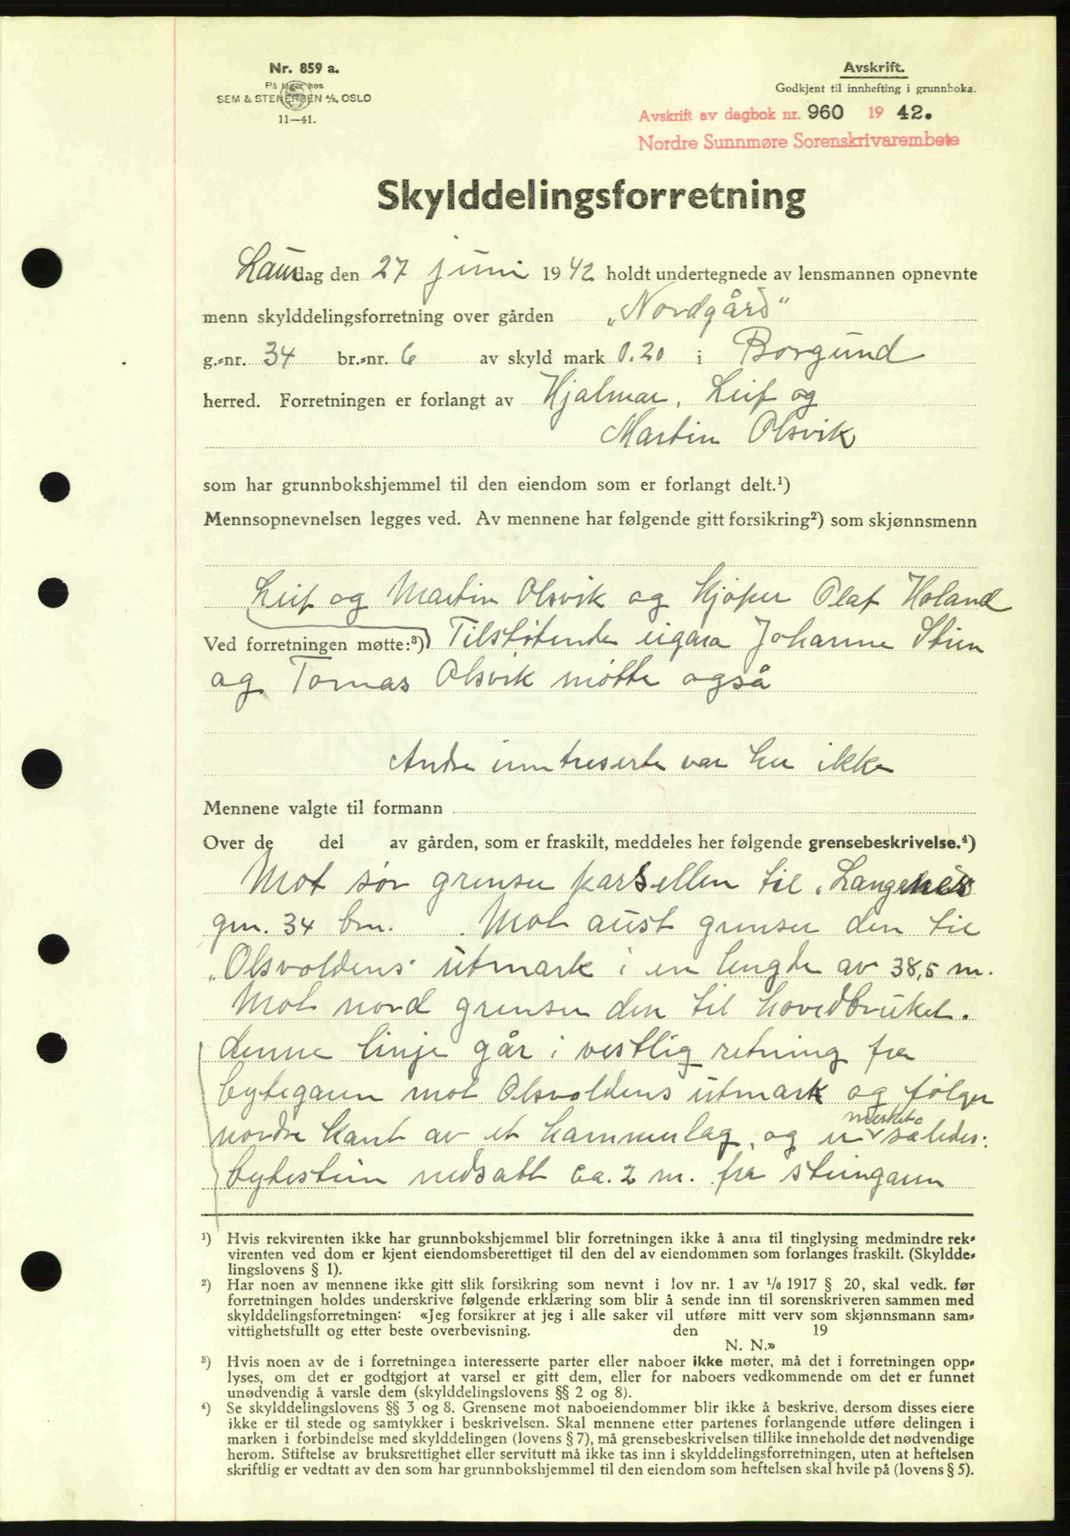 Nr. 859 a.
På lager hos
SEM & STENERSEN A/S, OSLO
11—41.
Avskrift.
Godkjent til innhefting i grunnboka.
Avskrift av dagbok nr. 960 1942.
Nordre Sunnmøre Sorenskrivarembete
Skylddelingsforretning
Laurdag den 27 juni 1942 holdt undertegnede av lensmannen opnevnte
menn skylddelingsforretning over gården „Nordgård“
g.-nr. 34 br.-nr. 6 av skyld mark 0.20 i Borgund
herred. Forretningen er forlangt av Hjalmar, Leif og
Martin Olsvik
som har grunnbokshjemmel til den eiendom som er forlangt delt.¹)
Mennsopnevnelsen legges ved. Av mennene har følgende gitt forsikring²) som skjønnsmenn
Leif og Martin Olsvik og kjøper Olaf Holand
Ved forretningen møtte:³) Tilstøtende eigara Johanne Stien
og Tomas Olsvik møtte også
Andre inntreserte var her ikke
Mennene valgte til formann
Over de del av gården, som er fraskilt, meddeles her følgende grensebeskrivelse.⁴)
Mot sør grenser parsellen til „Langenes
gnr. 34 bnr. . Mot aust grenser den til
„Olsvoldens“ utmark i en lengde av 38,5 m.
Mot nord grenser den til hovedbruket.
denne linje går i vestlig retning fra
bytegaren mot Olsvoldens utmark og følger
nordre kant av et hammerlag, og er merket således:
bytestein nedsatt ca. 2 m. fra steingaren
¹) Hvis rekvirenten ikke har grunnbokshjemmel blir forretningen ikke å anta til tinglysing medmindre rek-
virenten ved dom er kjent eiendomsberettiget til den del av eiendommen som forlanges fraskilt. (Skyldde-
lingslovens § 1).
²) Har noen av mennene ikke gitt slik forsikring som nevnt i lov nr. 1 av 1/6 1917 § 20, skal vedk. før
forretningen holdes underskrive følgende erklæring som blir å sende inn til sorenskriveren sammen med
skylddelingsforretningen: «Jeg forsikrer at jeg i alle saker vil utføre mitt verv som skjønnsmann sam-
vittighetsfullt og etter beste overbevisning. den 19
N. N.»
³) Hvis noen av de i forretningen interesserte parter eller naboer ikke møter, må det i forretningen opp-
lyses, om det er godtgjort at varsel er gitt dem, eller for naboers vedkommende om det er funnet
unødvendig å varsle dem (skylddelingslovens §§ 2 og 8).
⁴) Se skylddelingslovens §§ 3 og 8. Grensene mot naboeiendommer blir ikke å beskrive, dersom disses eiere
ikke er til stede og samtykker i beskrivelsen. Skal mennene etter partenes forlangende utføre delingen i
marken i forbindelse med skylddelingen (lovens § 7), må grensebeskrivelsen tillike inneholde det nødvendige
herom. Stiftelse av bruksrettighet eller servitutt må ikke tas inn i skylddelingsforretningen, uten at heftelsen
skriftlig er vedtatt av den som har grunnbokshjemmel til den eiendom som heftelsen skal hvile på (lovens § 5).